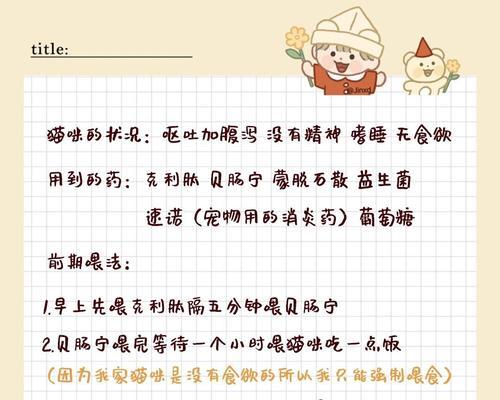 title:
@Jinxd
猫咪的状况：呕吐加腹泻 没有精神 嗜睡 无食欲
用到的药：克利肽 贝肠宁 蒙脱石散 益生菌
速诺（宠物用的消炎药）葡萄糖
前期喂法：
1.早上先喂克利肽隔五分钟喂贝肠宁
2.贝肠宁喂完等待一个小时喂猫咪吃一点饭
（因为我家猫咪是没有食欲的所以我只能强制喂食）